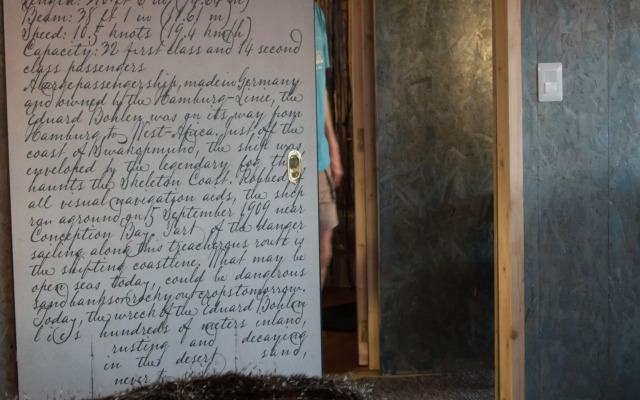 Length: 310 ft 6 in (94.64 m)
Beam: 38 ft 1 in (11.61 m)
Speed: 10.5 knots (19.4 km/h)
Capacity: 32 first class and 14 second
class passengers
A large passenger ship, made in Germany
and owned by the Hamburg-Linie, the
Eduard Bohlen was on its way from
Hamburg to West-Africa. Just off the
coast of Swakopmund, the ship was
enveloped by the legendary fog that
haunts the Skeleton Coast. Robbed of
all visual navigation aids, the ship
ran aground on 5 September 1909 near
Conception Bay. Part of the danger
sailing along this treacherous route is
the shifting coastline. What may be
open seas today, could be dangerous
sandbanks or rocky outcrops tomorrow.
Today, the wreck of the Eduard Bohlen
lies hundreds of meters inland,
rusting and decaying
in the desert sand,
never to